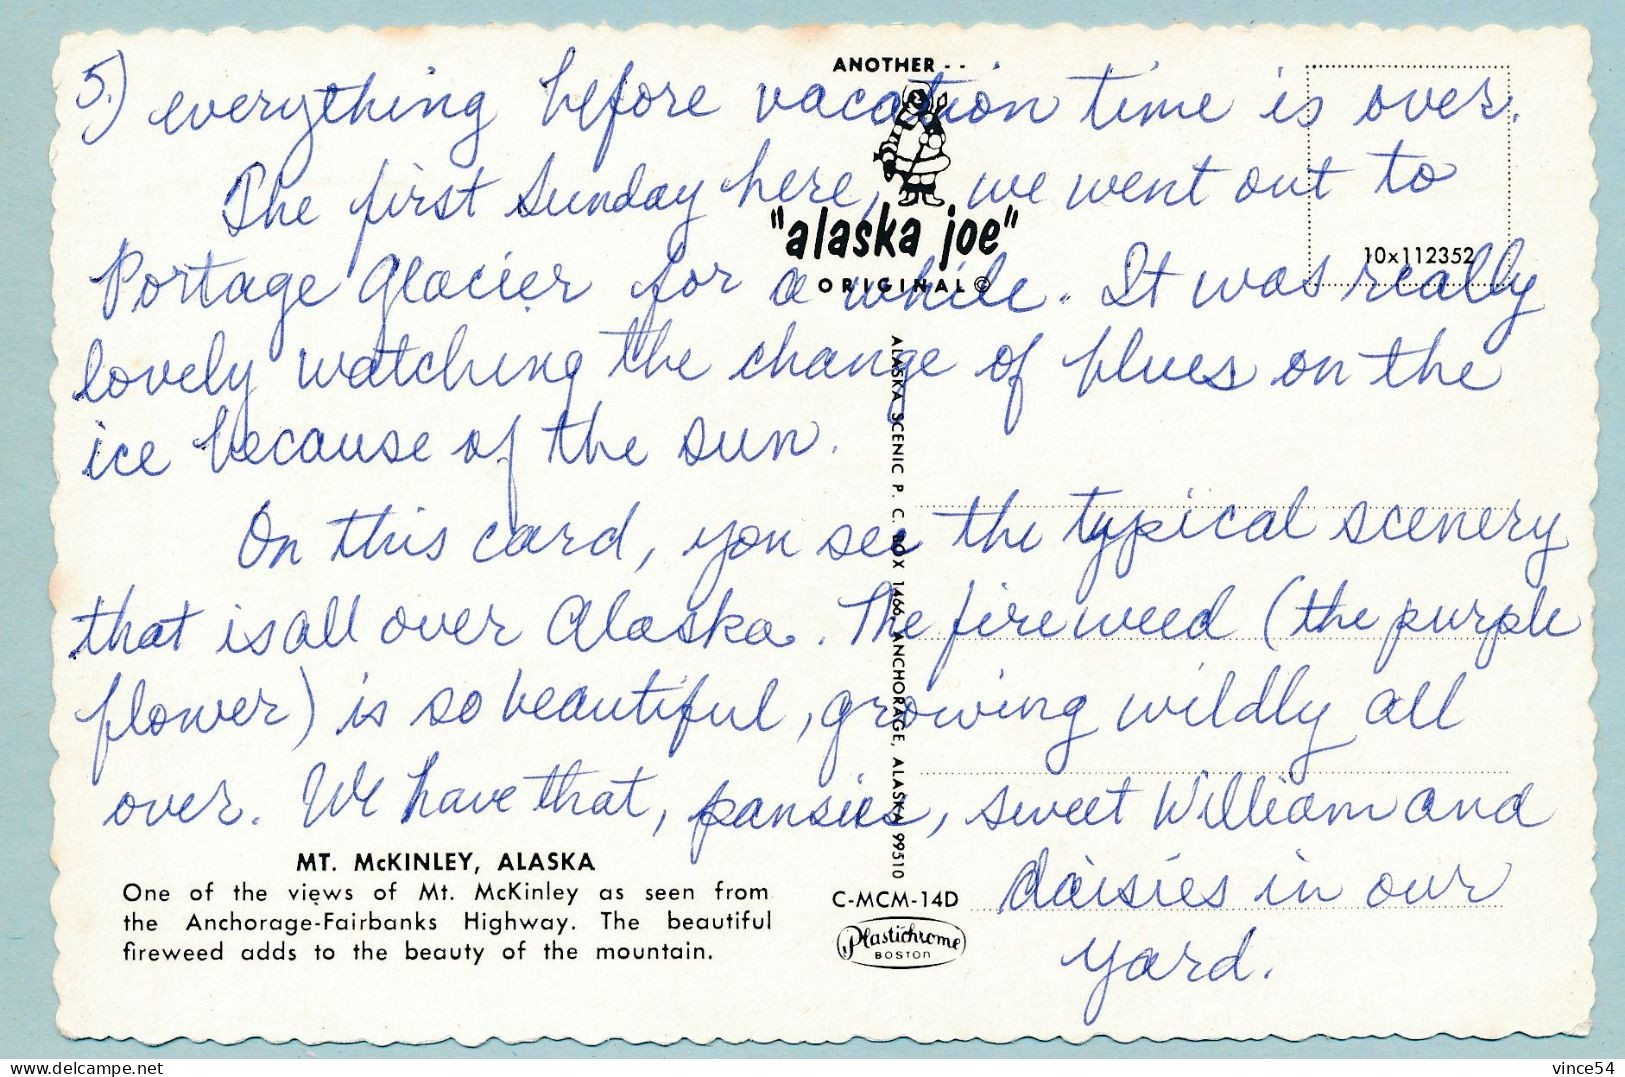 5.) everything before vacation time is over.
The first Sunday here, we went out to
Portage Glacier for a while. It was really
lovely watching the change of blues on the
ice because of the sun.
On this card, you see the typical scenery
that is all over Alaska. The fireweed (the purple
flower) is so beautiful, growing wildly all
over. We have that, pansies, sweet William and
daisies in our
yard.
ANOTHER - -
"alaska joe"
ORIGINAL ©
10x112352
ALASKA SCENIC P. C. BOX 1466, ANCHORAGE, ALASKA 99510
MT. McKINLEY, ALASKA
One of the views of Mt. McKinley as seen from
the Anchorage-Fairbanks Highway. The beautiful
fireweed adds to the beauty of the mountain.
C-MCM-14D
Plastichrome
BOSTON
delcampe.net
vince54